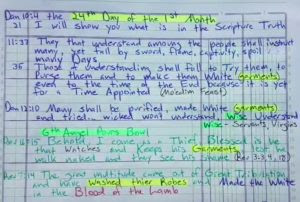 Dan 10:4 the 24th Day of the 1st Month
21 I will show you what is in the Scripture Truth
11:33 They that understand among the people shall instruct
many, yet fall by sword, flame, captivity, spoil
Many Days
35 Those of understanding shall fall to Try them, to
Purge them and to make them White (garments)
even to the time of the End because it is yet
for a Time Appointed (Moedim feasts)
Dan 12:10 Many shall be purified, made White (garments)
and tried.. wicked won't understand, Wise Understand
Wise - Servants, Virgins
6th Angel Pours Bowl
Rev 16:15 Behold I come as a Thief Blessed is he
that Watches and Keeps his Garments, lest he
walk naked and they see his shame (Rev 3:3,4,18)
Rev 7:14 The great multitude came out of Great Tribulation
and have Washed thier Robes and Made the White
in the Blood of the Lamb